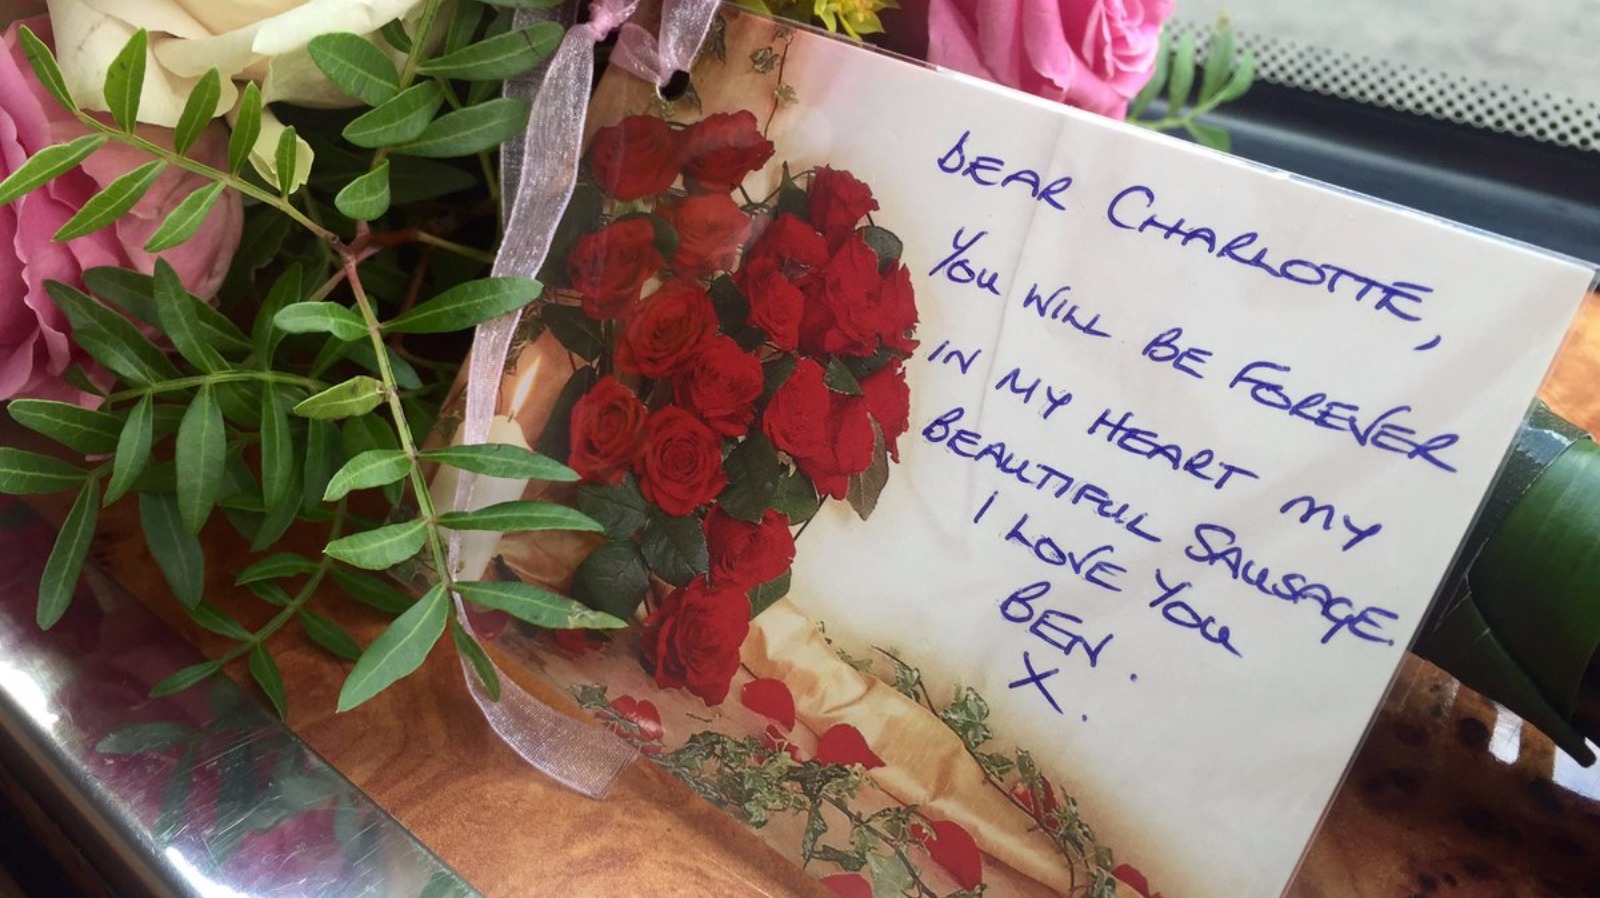 DEAR CHARLOTTE,
YOU WILL BE FOREVER
IN MY HEART MY
BEAUTIFUL SAUSAGE.
I LOVE YOU
BEN.
X.